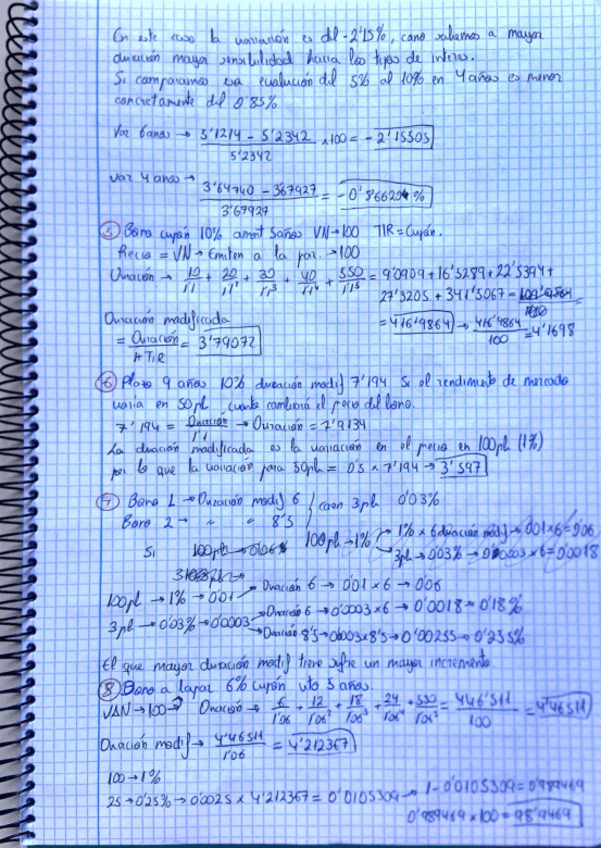 En este caso la variación es del -2'15%, como sabemos a mayor
duración mayor sensibilidad hacia los tipos de interes.
Si comparamos esa evolución del 5% al 10% en 4 años es menor
concretamente del 0'85%
Var 6 años → (5'1214 - 5'2342)/5'2342 x100 = -2'15505
var 4 años → (3'64740 - 3'67927)/3'67927 = -0'866204%
⑤ Bono cupón 10% amort 5 años VN → 100 TIR = Cupón.
Precio = VN → Emiten a la par. → 100
Duración → 10/1'1 + 20/1'1² + 30/1'1³ + 40/1'1⁴ + 550/1'1⁵ = 9'0909 + 16'5289 + 22'5394 +
27'3205 + 341'5067 =
= 416'9864 → 416'9864/100 = 4'1698
Duración modificada
= Duración/1+TIR = 3'79072
⑥ Plazo 9 años 10% duración modif 7'194 Si el rendimiento de mercado
varia en 50pb cuanto cambiará el precio del bono.
7'194 = Duración/1'1 → Duración = 7'9134
La duación modificada es la variación en el precio en 100pb (1%)
por lo que la variación para 50pb = 0'5 x 7'194 → 3'597
⑦ Bono 1 → Duración modif 6 / caen 3pb 0'03%
Bono 2 → " " 8'5
Si 100pb → 0'06% 100pb → 1% → 1% x 6 duración modif → 0'01 x 6 = 0'06
→ 3pb → 0'03% → 0'0003 x 6 = 0'0018
100pb → 1% → 0'01 → Duración 6 → 0'01 x 6 → 0'06
3pb → 0'03% → 0'0003 → Duración 6 → 0'0003 x 6 → 0'0018 → 0'18%
→ Duración 8'5 → 0'0003 x 8'5 → 0'00255 → 0'255%
El que mayor duración modif tiene sufre un mayor incremento
⑧ Bono a la par 6% cupón vto 5 años.
VAN → 100 → Duración → 6/1'06 + 12/1'06² + 18/1'06³ + 24/1'06⁴ + 530/1'06⁵ = 446'511/100 = 4'46511
Duación modif → 4'46511/1'06 = 4'212367
100 → 1%
25 → 0'25% → 0'0025 x 4'212367 = 0'0105309 → 1 - 0'0105309 = 0'989469
0'989469 x 100 = 98'9469